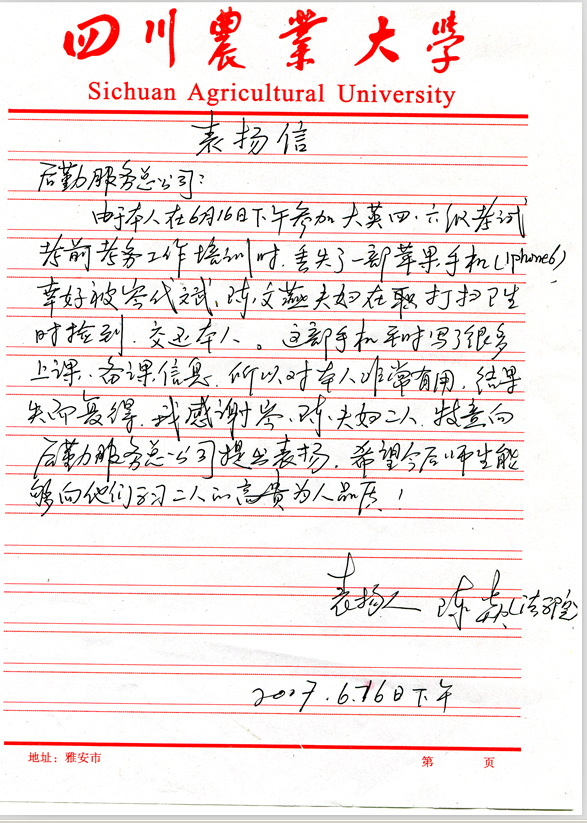 四川農業大學
Sichuan Agricultural University
表扬信
后勤服务总公司：
由于本人在6月16日下午参加大英四、六级考试
考前考务工作培训时，丢失了一部苹果手机(Iphone6)
幸好被岑代文武、陈文燕夫妇在职打扫卫生
时捡到，交还本人。这部手机平时写了很多
上课、备课信息，所以对本人非常有用，结果
失而复得，我感谢岑、陈夫妇二人，特意向
后勤服务总公司提出表扬，希望今后师生能
够向他们学习二人的高贵为人品质！
表扬人 陈 (法学院
2017.6.16日下午
地址：雅安市
第 页